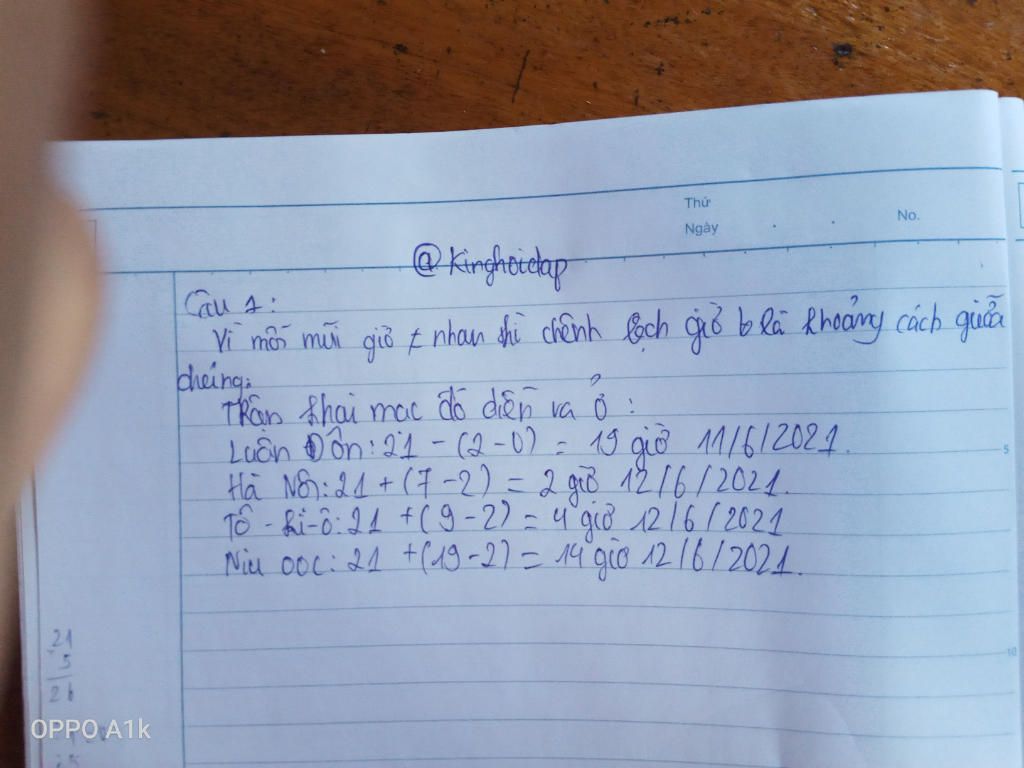 Thứ
Ngày . . No.
@Kinghoidap
Câu 1:
Vì mỗi múi giờ ≠ nhau thì chênh lệch giờ là khoảng cách giữa
chúng.
Trận khai mạc đó diễn ra ở :
Luân Đôn: 21 - (2-0) = 19 giờ 11/6/2021.
Hà Nội: 21 + (7-2) = 2 giờ 12/6/2021.
Tô-ki-ô: 21 + (9-2) = 4 giờ 12/6/2021
Niu ooc: 21 + (19-2) = 14 giờ 12/6/2021.
5
10
21
5
26
OPPO A1k